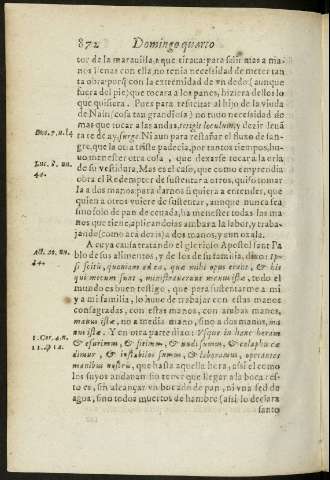 872 Domingo quarto
tor de la marauilla, a que tiraua: para salir mas a ma-
nos llenas con ella, no tenia necessidad de meter tan
ta obra: porq̃ con la extremidad de vn dedo (aunque
fuera del pie) que tocara a los panes, hiziera dellos lo
que quisiera. Pues para resucitar al hijo de la viuda
de Nain (cosa tan grandiosa) no tuuo necessidad de
mas que tocar a las andas, tetigit loculum, y dezir leuã
tare de ay, surge. Ni aun para restañar el fluxo de san-
gre, que la otra triste padecia, por tantos tiempos, hu-
uo menester otra cosa, que dexarse tocar a la orla
de su vestidura. Mas es el caso, que como emprendia
obra el Redemptor de sustentar a otros, quiso tomar
la a dos manos: para darnos si quiera a entender, que
quien a otros vuiere de sustentar, aunque nunca sea
sino solo de pan de ceuada, ha menester todas las ma
nos que tiene, aplicandolas ambas a la labor, y traba-
jando (como acà dezis) a dos manos, y con toda.
A cuya causa tratando el glorioso Apostol sant Pa
blo de sus alimentos, y de los de su familia, dixo: Ip-
si scitis, quoniam ad ea, quæ mihi opus erant, & his
qui mecum sunt, ministrauerunt manus istæ, todo el
mundo es buen testigo, que para sustentarme a mi
y a mi familia, lo huue de trabajar con estas manos
consagradas, con estas manos, con ambas manos,
manus istæ, no a media mano, sino a dos manos, ma
nus istæ. Y en otra parte dixo: Vsque in hanc horam
& esurimus, & sitimus, & nudi sumus, & colaphis cæ
dimur, & instabiles sumus, & laboramus, operantes
manibus nostris, que hasta aquella hora, assi el como
los suyos andauan sin tener que llegar a la boca: res-
to es, sin alcançar vn bocado de pan, ni vna sed de
agua, sino todos muertos de hambre (assi lo declara
santo
Luc. 8. nu.
44.
Act. 20. nu.
34.
1. Cor. 4. n.
11. & 12.